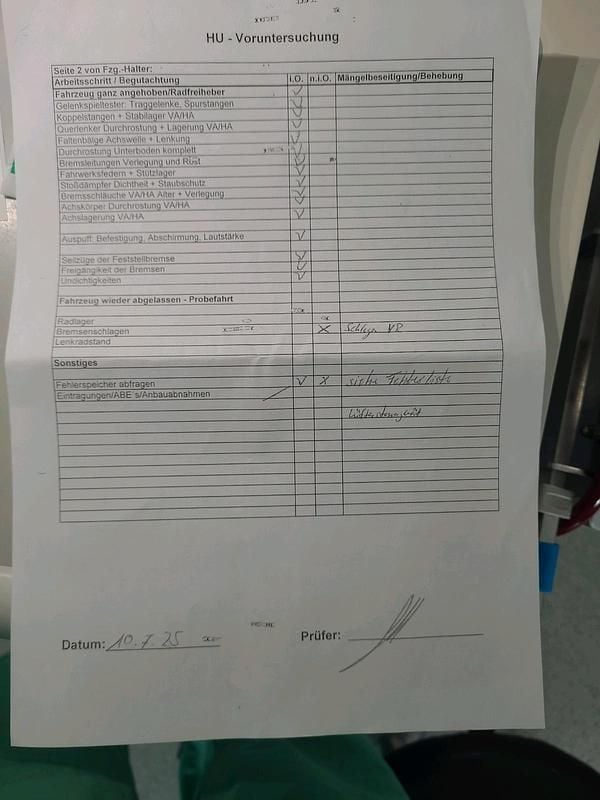 HU - Voruntersuchung
Seite 2 von Fzg.-Halter:
Arbeitsschritt / Begutachtung i.O. n.i.O. Mängelbeseitigung/Behebung
Fahrzeug ganz angehoben/Radfreiheber
Gelenkspieltester: Traggelenke, Spurstangen
Koppelstangen + Stabilager VA/HA
Querlenker Durchrostung + Lagerung VA/HA
Faltenbälge Achswelle + Lenkung
Durchrostung Unterboden komplett
Bremsleitungen Verlegung und Rost
Fahrwerksfedern + Stützlager
Stoßdämpfer Dichtheit + Staubschutz
Bremsschläuche VA/HA Alter + Verlegung
Achskörper Durchrostung VA/HA
Achslagerung VA/HA
Auspuff: Befestigung, Abschirmung, Lautstärke
Seilzüge der Feststellbremse
Freigängikeit der Bremsen
Undichtigkeiten
Fahrzeug wieder abgelassen - Probefahrt
Radlager
Bremsenschlagen X Schlagen
Lenkradstand
Sonstiges
Fehlerspeicher abfragen X siehe Fehlerliste
Eintragungen/ABE´s/Anbauabnahmen
Lüftersteuergerät
Datum: 10.7.25 Prüfer: